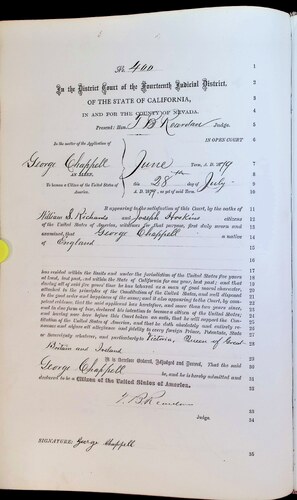 No. 400
In the District Court of the Fourteenth Judicial District,
OF THE STATE OF CALIFORNIA,
IN AND FOR THE COUNTY OF NEVADA.
Present: Hon. T B Reardan Judge.
IN OPEN COURT
In the matter of the Application of
George Chappell
an alien,
To become a Citizen of the United States of America.
June Term, A. D. 1879
this 28th day of July
A. D. 1879, as yet of said Term.
It appearing to the satisfaction of this Court, by the oaths of
William S. Richards and Joseph Hoskins citizens
of the United States of America, witnesses for that purpose, first duly sworn and
examined, that George Chappell a native
of England
has resided within the limits and under the jurisdiction of the United States five years
at least, last past, and within the State of California for one year, last past; and that
during all of said five years' time he has behaved as a man of good moral character,
attached to the principles of the Constitution of the United States, and well disposed
to the good order and happiness of the same; and it also appearing to the Court, by com-
petent evidence, that the said applicant has heretofore, and more than two years since,
and in due form of law, declared his intention to become a citizen of the United States;
and having now here before this Court taken an oath, that he will support the Con-
stitution of the United States of America, and that he doth absolutely and entirely re-
nounce and abjure all allegiance and fidelity to every foreign Prince, Potentate, State
or Sovereignty whatever, and particularly to Victoria, Queen of Great
Britain and Ireland
It is therefore Ordered, Adjudged and Decreed, That the said
George Chappell be, and he is hereby admitted and
declared to be a Citizen of the United States of America.
T. B. Reardan
Judge.
SIGNATURE: George Chappell